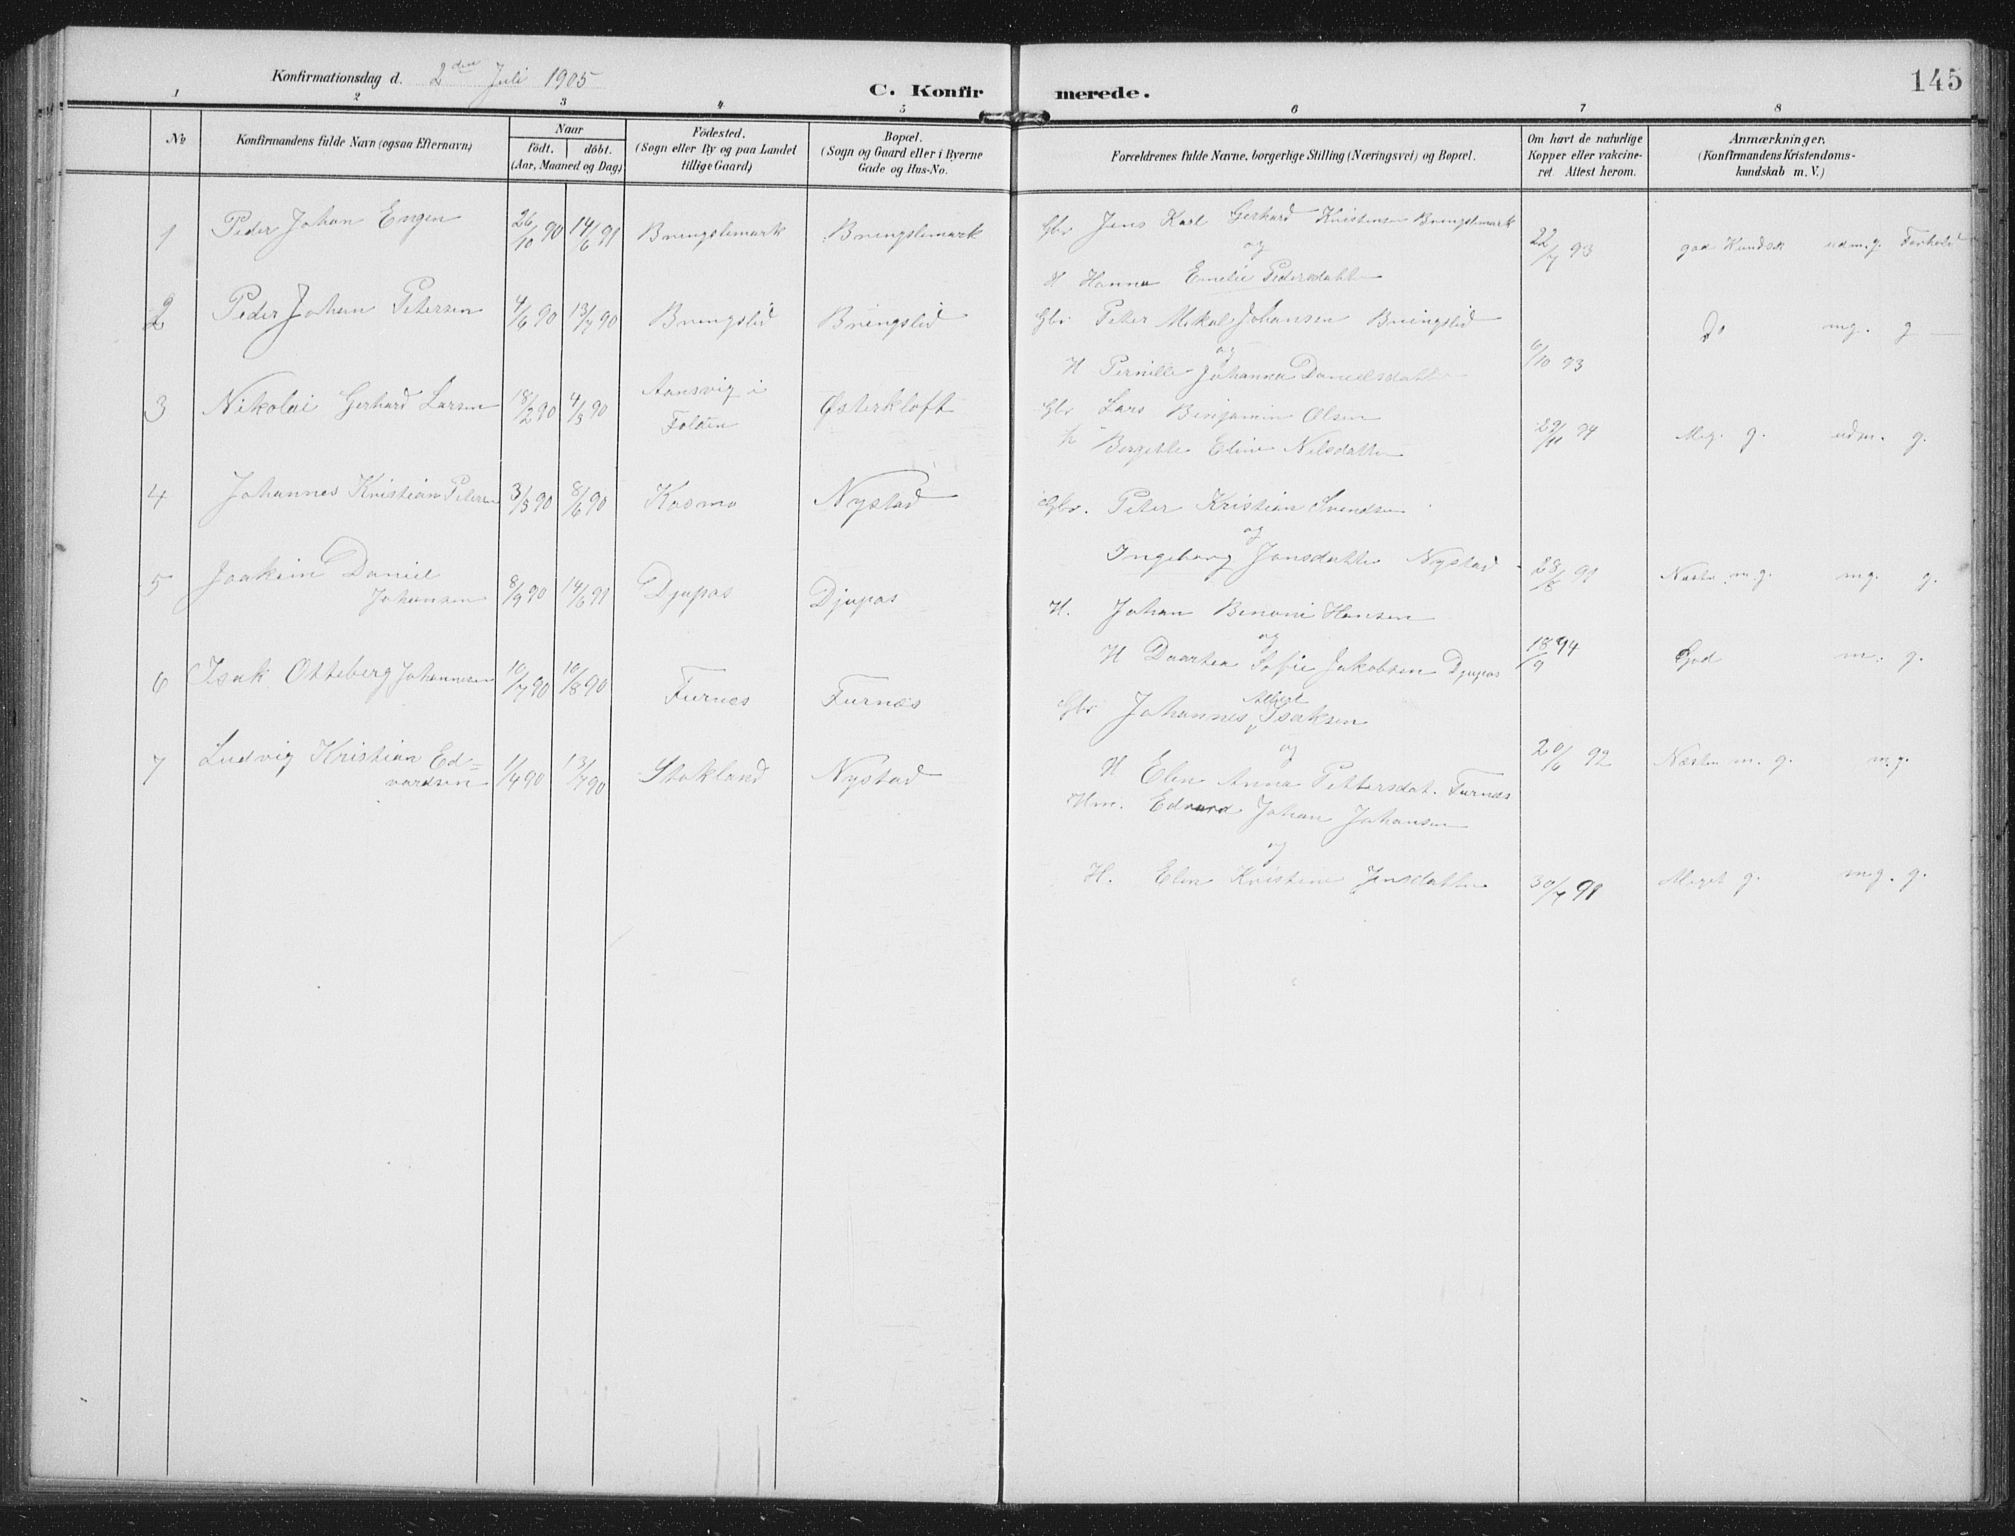 Konfirmationsdag d. 2den Juli 1905
C. Konfirmerede.
145
1 2 3 4 5 6 7 8
No
Konfirmandens fulde Navn (ogsaa Efternavn)
Naar
födt. döbt.
(Aar, Maaned og Dag)
Födested.
(Sogn eller By og paa Landet
tillige Gaard)
Bopæl.
(Sogn og Gaard eller i Byerne
Gade og Hus-No.
Forældrenes fulde Navne, borgerlige Stilling (Næringsvei) og Bopæl.
Om havt de naturlige
Kopper eller vakcine-
ret. Attest herom.
Anmærkninger.
(Konfirmandens Kristendoms-
kundskab m. V.)
1 Peder Johan Engen 26/10 90 14/6 91 Bringslimark Bringslimark Gbr Jens Karl Gerhard Kristensen Bringslimark
og
H Hanna Emelie Pedersdatter 22/7 93 god Kundsk udm. g. Forhold
2 Peder Johan Petersen 4/6 90 13/7 90 Bringslid Bringslid Gbr Peter Mikal Johansen Bringslid
og
H Pernille Johanna Danielsdatter 6/10 93 Do mg. g
3 Nikolai Gerhard Larsen 18/2 90 4/3 90 Aansvig i
Folden Østerkløft Gbr Lars Benjamin Olsen
H Borgitte Eline Nilsdatter 29/11 94 Meg. g. udm. g.
4 Johannes Kristian Petersen 3/3 90 8/6 90 Kosmo Nystad Gbr. Peter Kristian Svendsen
og
Ingeborg Jonsdatter Nystad 28/6 91 Næsten m.g. mg. g.
5 Joakim Daniel
Johansen 8/9 90 14/6 91 Djupos Djupos H. Johan Benoni Hansen
og
H Daartea Sofie Jakobsen Djupos 18/9 94 God m. g.
6 Isak Otteberg Johannesen 10/7 90 10/8 90 Furnes Furnæs Gbr Johannes Albigt Isaksen
og
H Elen Anna Pettersdat. Furnæs 20/6 92 Næsten m. g. m.g.
7 Ludvig Kristian Ed=
vardsen 1/4 90 13/7 90 Stokland Nystad Hm. Edvard Johan Johansen
og
H. Elen Kristine Jensdatter 30/7 91 Meget g. m.g. g.